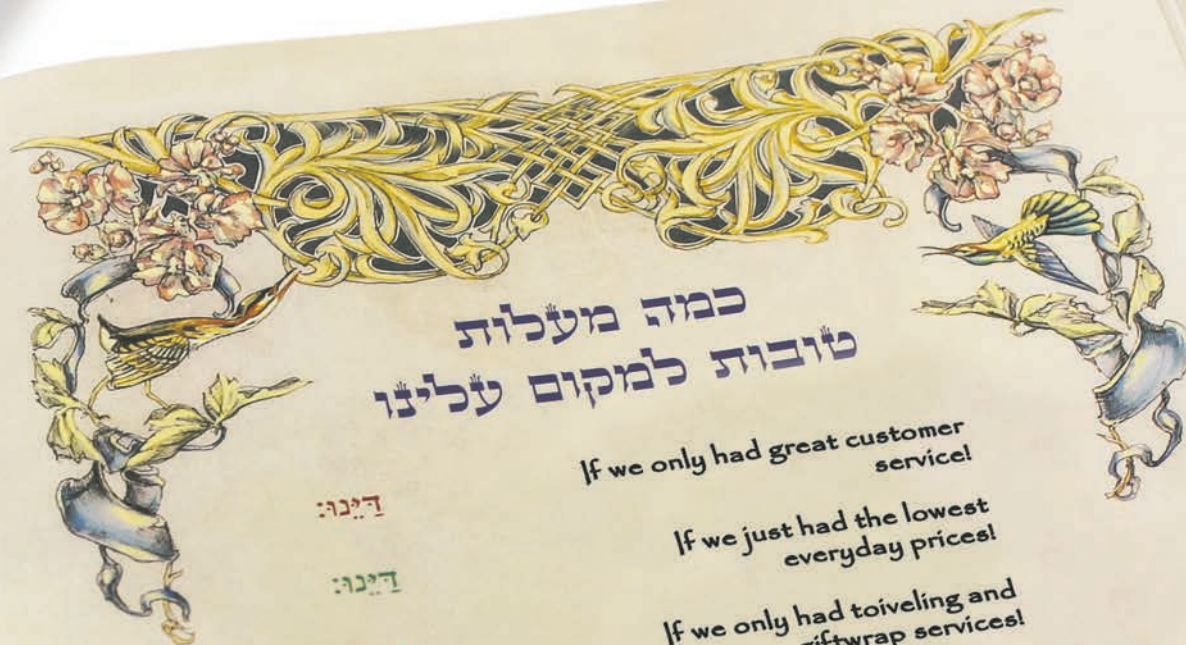 כמה מעלות
טובות למקום עלינו
If we only had great customer
service!
דַּיֵּנוּ:
If we just had the lowest
everyday prices!
דַּיֵּנוּ:
If we only had toiveling and
giftwrap services!